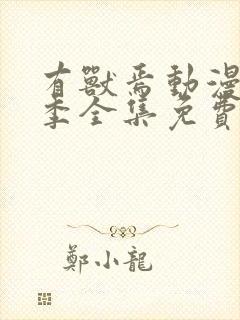 有獸焉動漫
季全集免費
鄭小龍